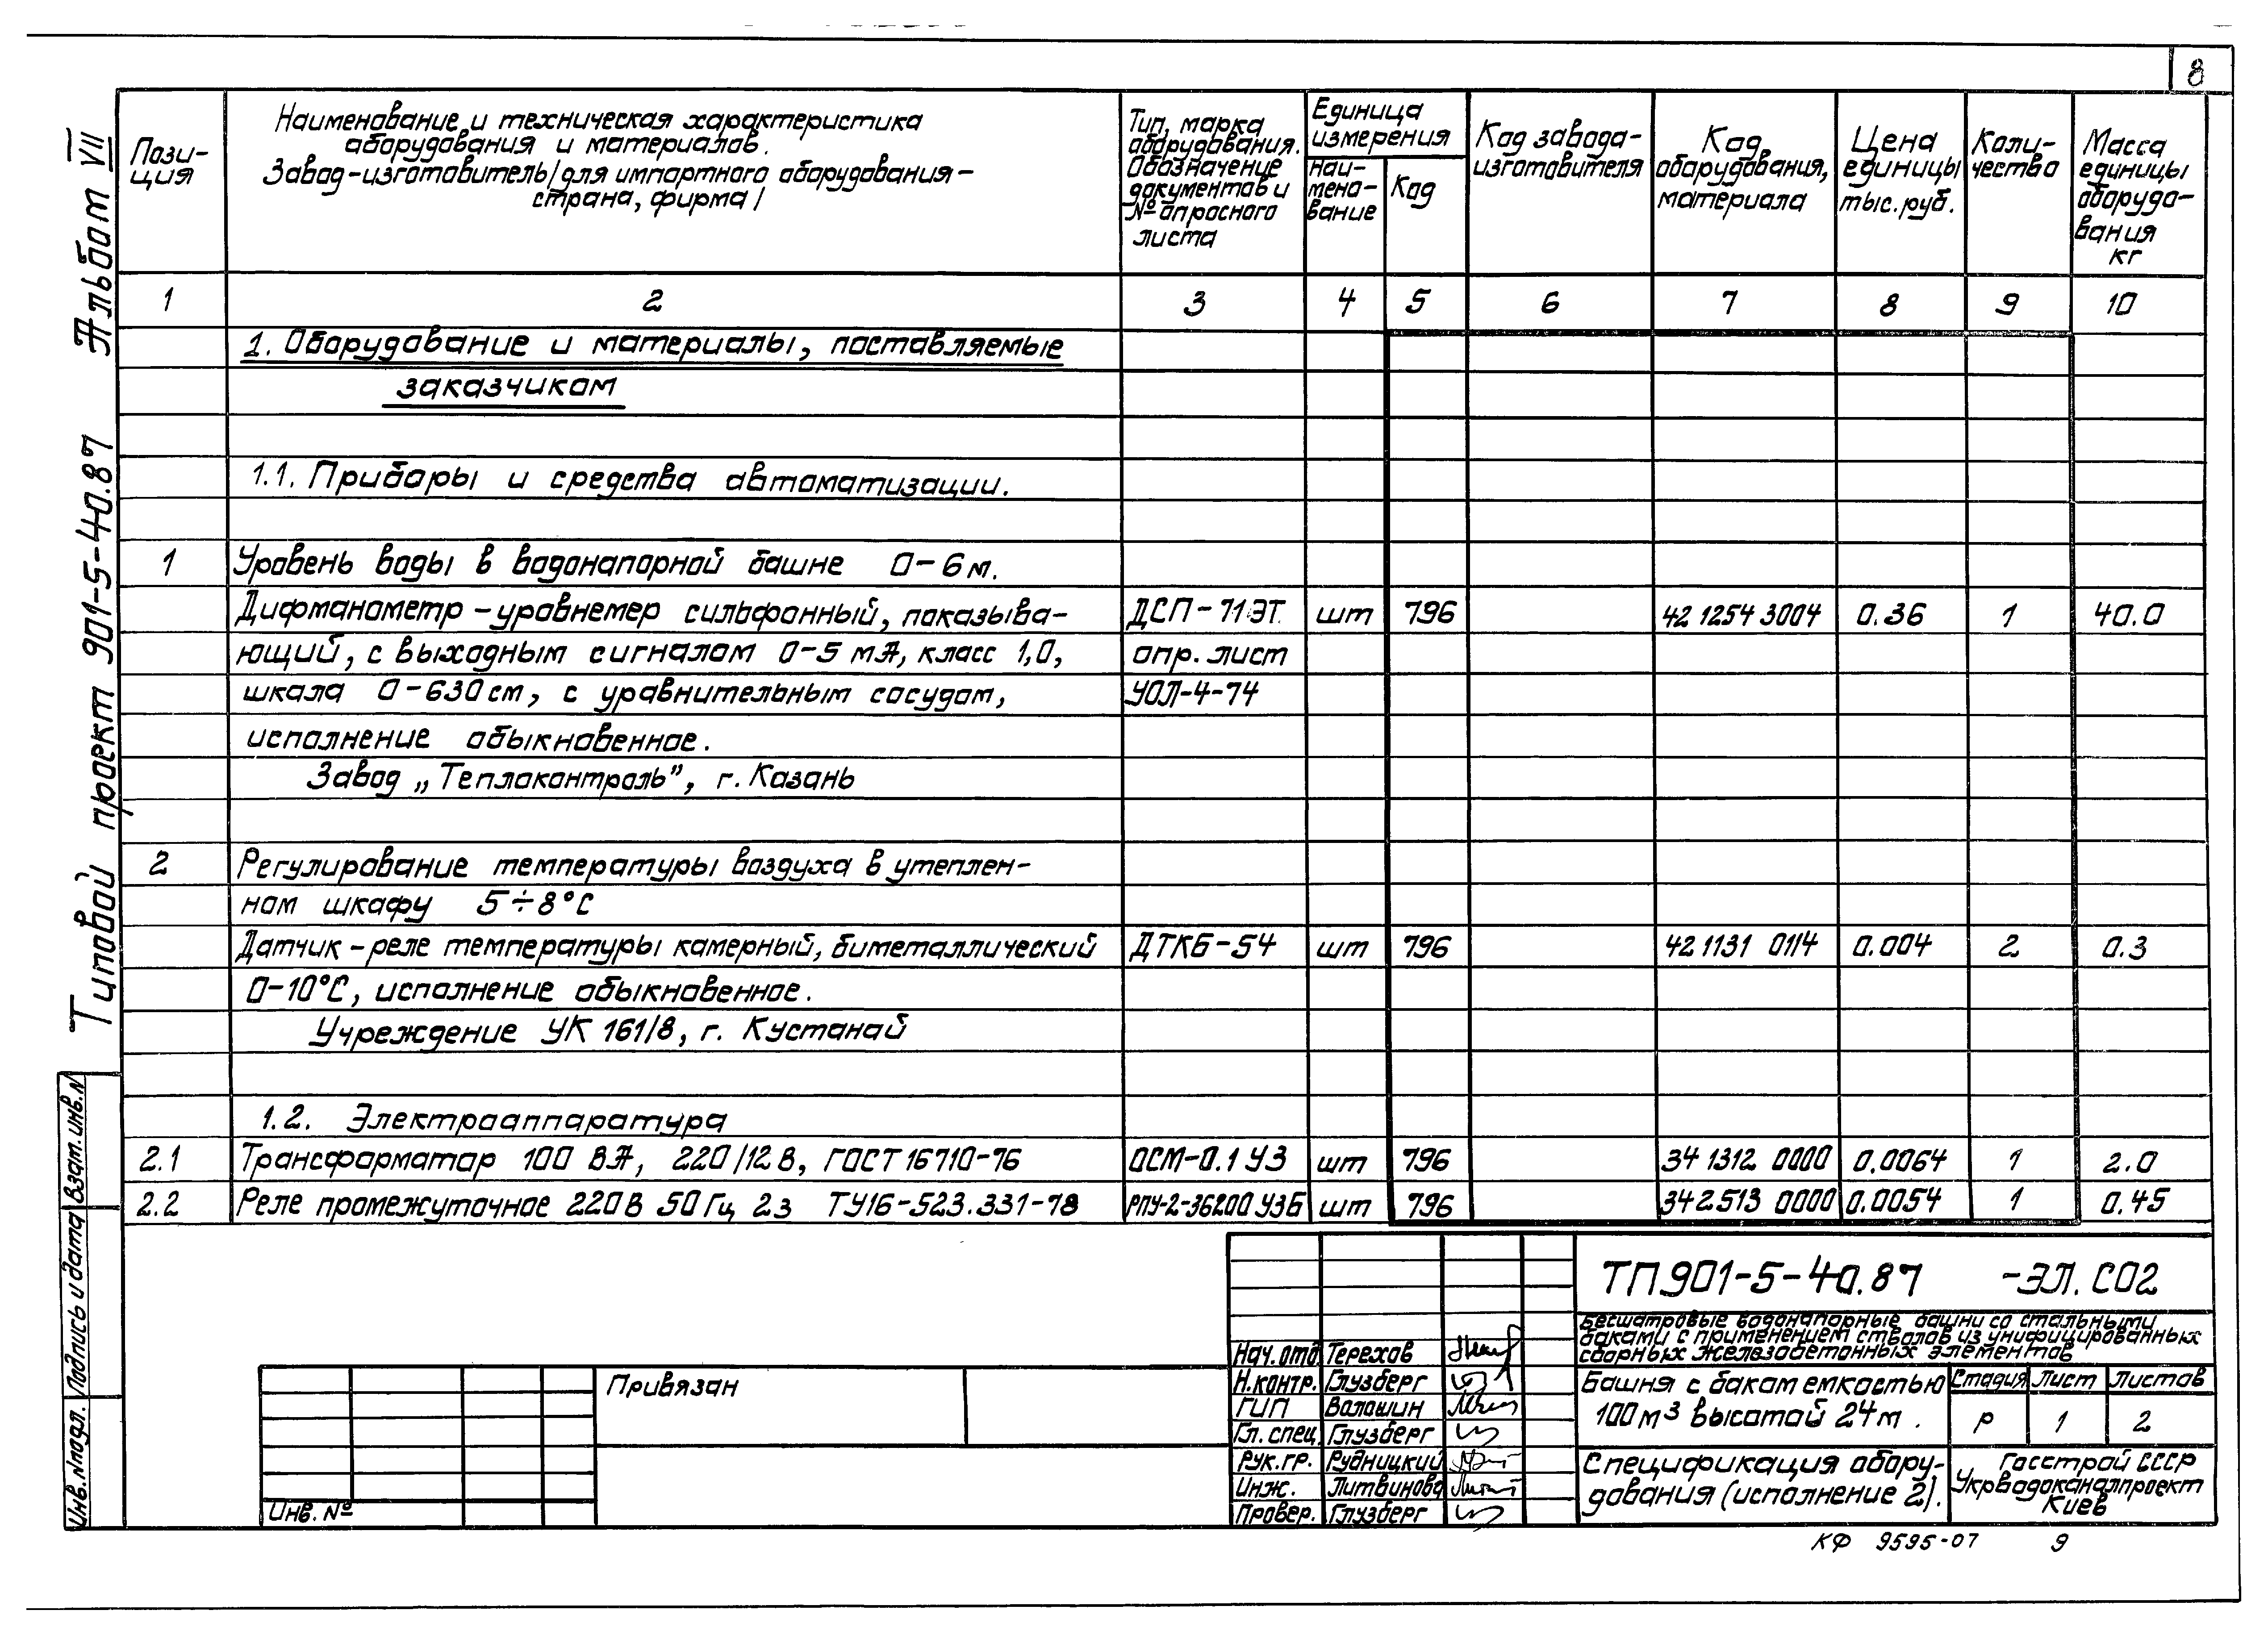 8
Типовой проект 901-5-40.87 Альбом VII
Пози-
ция
Наименование и техническая характеристика
оборудования и материалов.
Завод-изготовитель /для импортного оборудования-
страна, фирма/
Тип, марка
оборудования.
Обозначение
документов и
№ опросного
листа
Единица
измерения
Наи-
мено-
вание
Код
Код завода-
изготовителя
Код
оборудования,
материала
Цена
единицы
тыс. руб.
Коли-
чество
Масса
единицы
оборудо-
вания
кг
1 2 3 4 5 6 7 8 9 10
1. Оборудование и материалы, поставляемые
заказчиком
1.1. Приборы и средства автоматизации.
1 Уровень воды в водонапорной башне 0-6 м.
Дифманометр-уровнемер сильфонный, показыва- ДСП-71ЭТ шт 796 42 1254 3004 0.36 1 40.0
ющий, с выходным сигналом 0-5 мА, класс 1,0, опр. лист
шкала 0-630 см, с уравнительным сосудом, УОЛ-4-74
исполнение обыкновенное.
Завод „Теплоконтроль", г. Казань
2 Регулирование температуры воздуха в утеплен-
ном шкафу 5÷8°С
Датчик-реле температуры камерный, биметаллический ДТКБ-54 шт 796 42 1131 0114 0.004 2 0.3
0-10°С, исполнение обыкновенное.
Учреждение УК 161/8, г. Кустанай
1.2. Электроаппаратура
2.1 Трансформатор 100 ВА, 220/12 В, ГОСТ 16710-76 ОСМ-0.1 У3 шт 796 34 1312 0000 0.0064 1 2.0
2.2 Реле промежуточное 220 В 50 Гц 2з ТУ16-523.331-78 РПУ-2-36200 У3Б шт 796 34 2513 0000 0.0054 1 0.45
Взам. инв. N
Подпись и дата
Инв. N подл.
Привязан
Инв. №
Нач. отд. Терехов
Н. контр. Глузберг
ГИП Волошин
Гл. спец. Глузберг
Рук. гр. Рудницкий
Инж. Литвинова
Провер. Глузберг
ТП 901-5-40.87 -ЭЛ.СО2
Бесшатровые водонапорные башни со стальными
баками с применением стволов из унифицированных
сборных железобетонных элементов
Башня с баком емкостью
100 м3 высотой 24 м.
Стадия Лист Листов
Р 1 2
Спецификация обору-
дования (исполнение 2).
Госстрой СССР
Укрводоканалпроект
Киев
КФ 9595-07 9